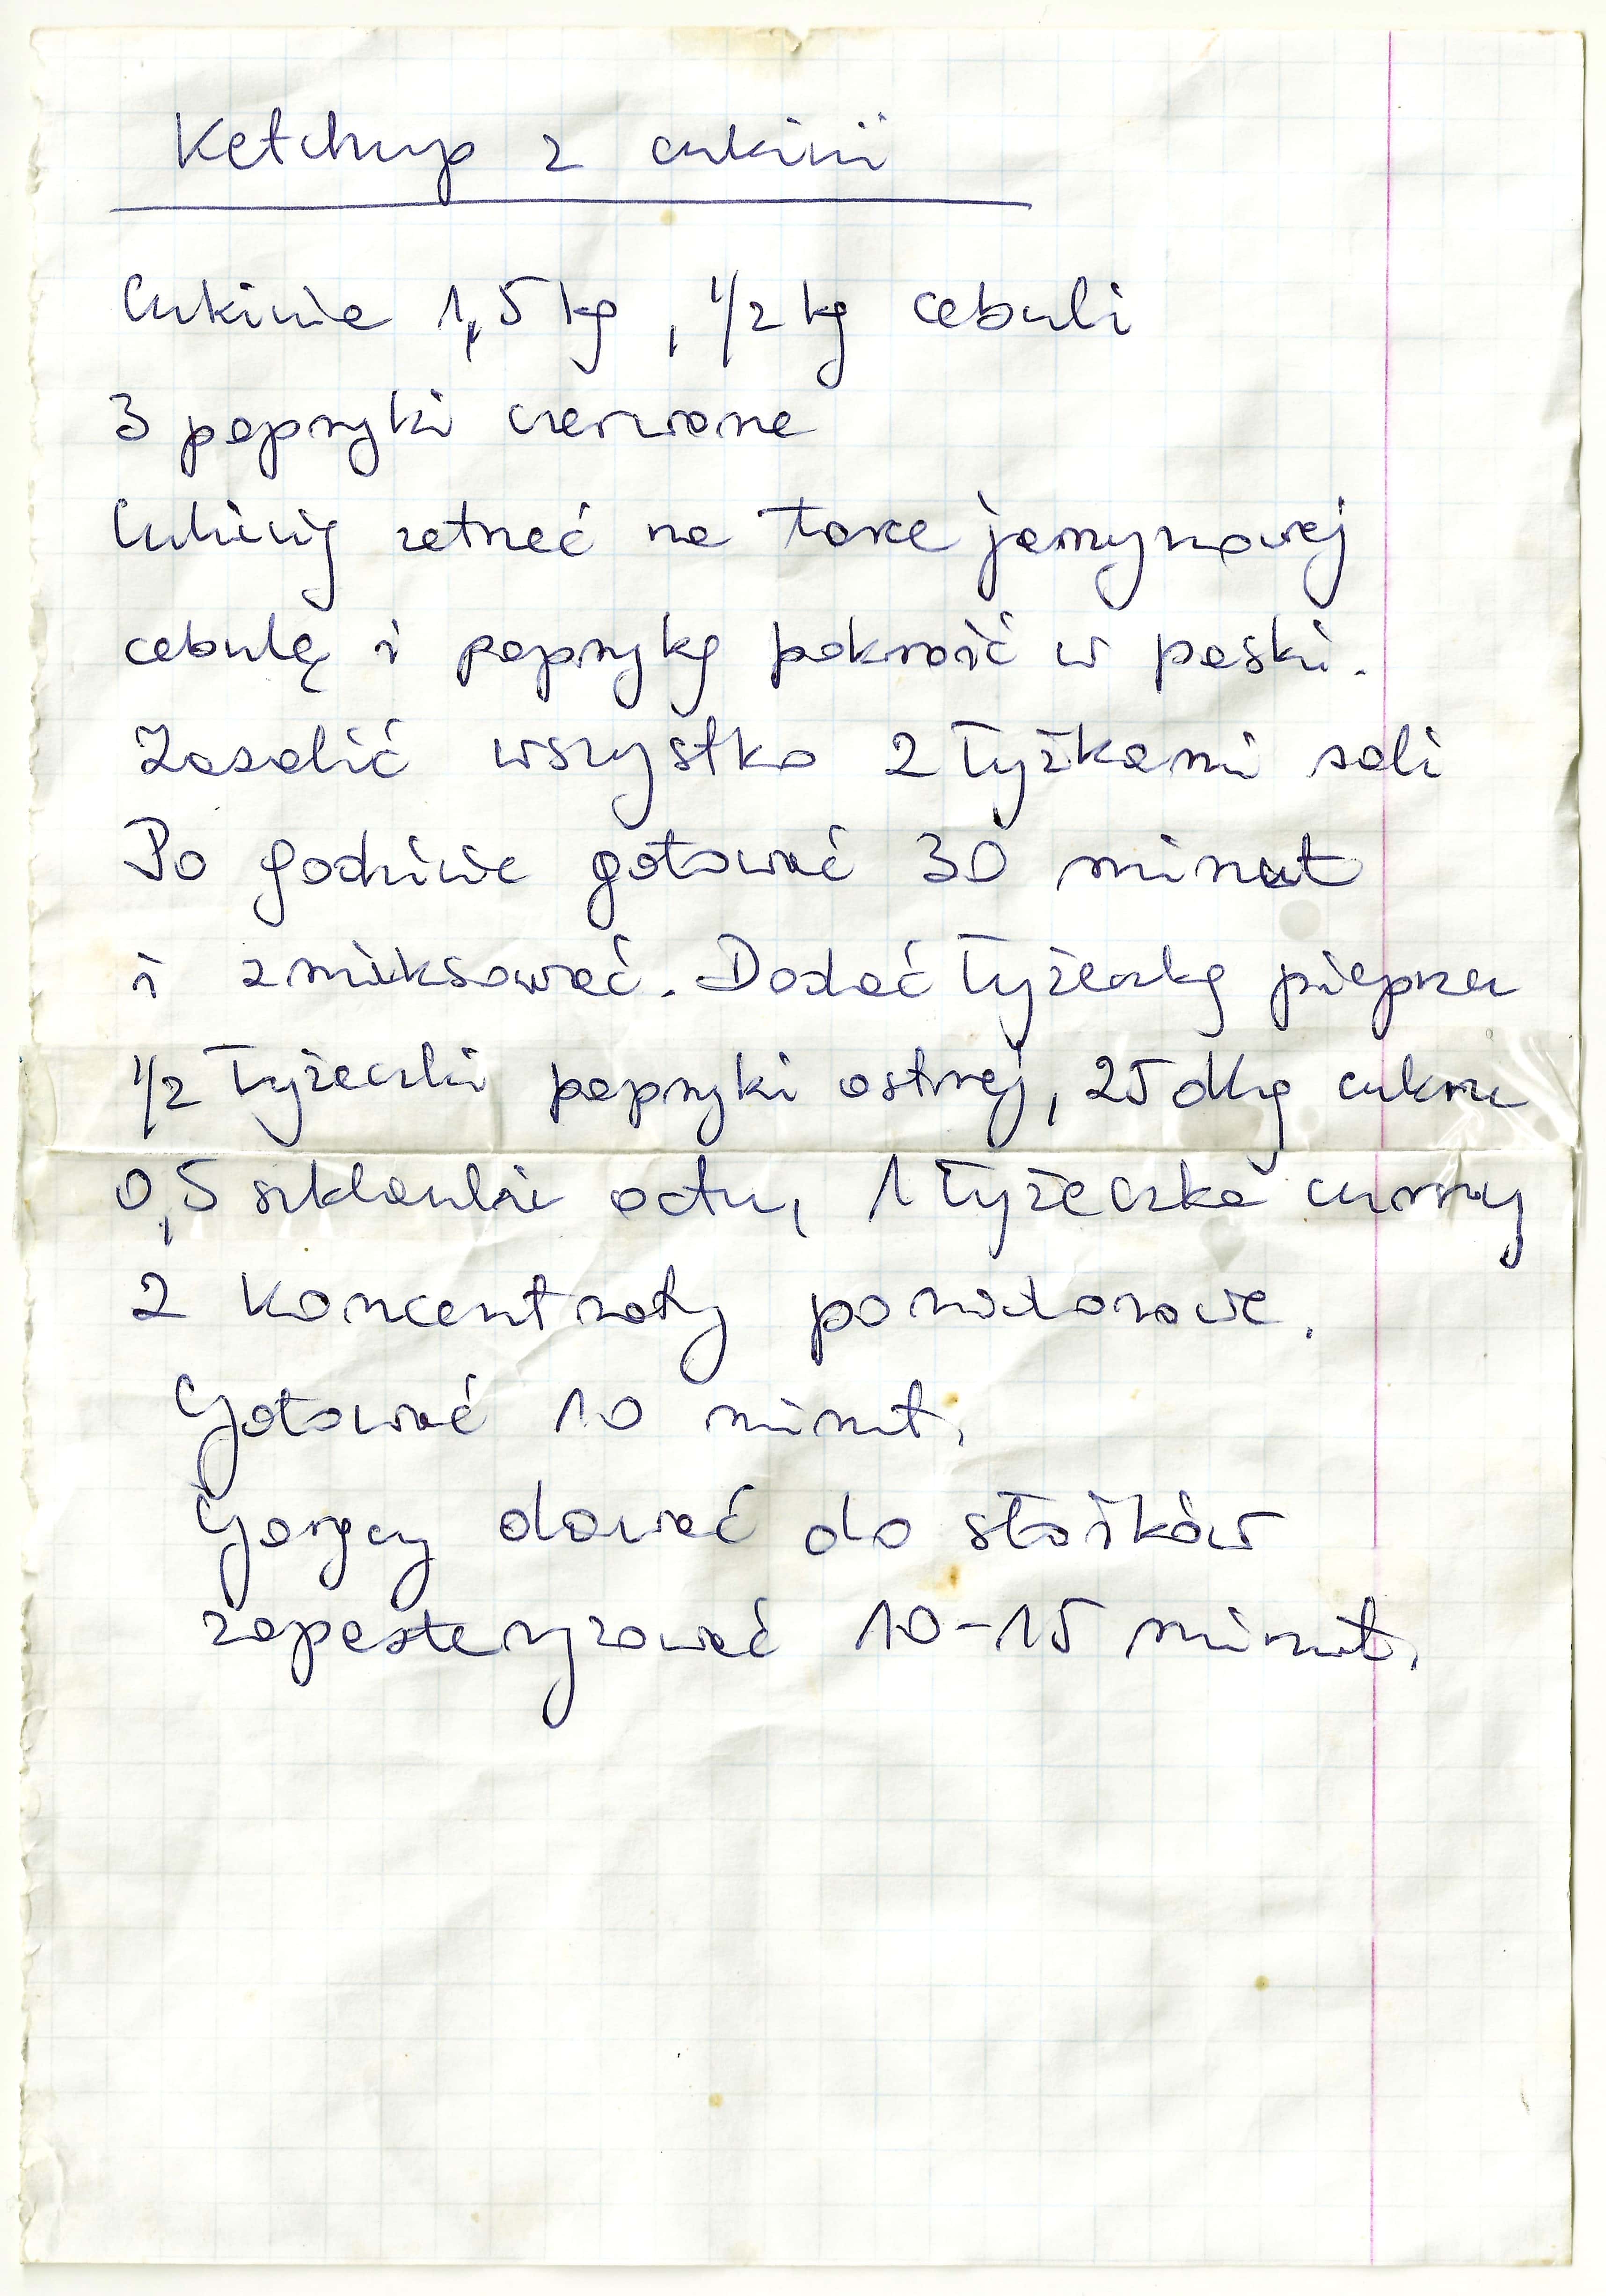 Ketchup z cukinii
Cukinie 1,5 kg, 1/2 kg cebuli
3 papryki czerwone
Cukinię zetrzeć na tarce jarzynowej
cebulę i paprykę pokroić w paski.
Zasolić wszystko 2 łyżkami soli
Po godzinie gotować 30 minut
i zmiksować. Dodać łyżeczkę pieprzu
1/2 łyżeczki papryki ostrej, 25 dkg cukru
0,5 szklanki octu, 1 łyżeczka curry
2 koncentraty pomidorowe.
Gotować 10 minut.
Gorący dawać do słoików
zapasteryzować 10-15 minut.